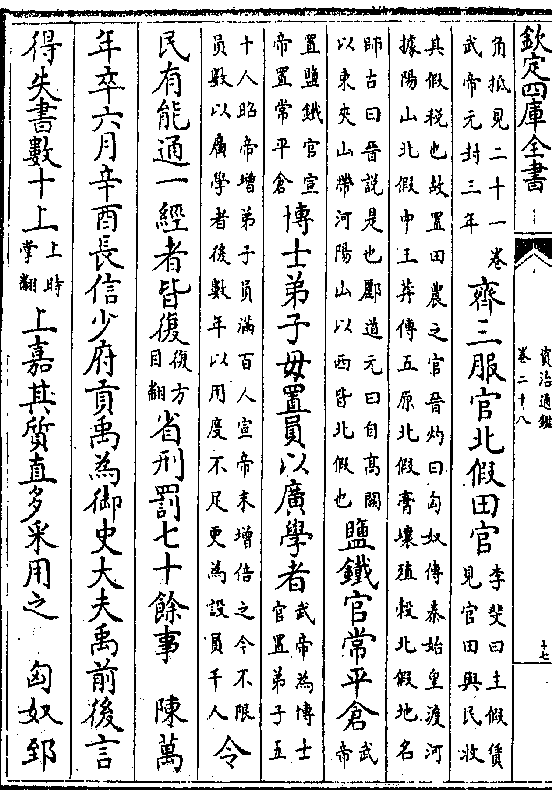 欽定四庫全書
資治通鑑
卷二十八
十七
角抵見二十一卷
武帝元封三年
齊三服官北假田官
李斐曰主假賃
見官田與民收
其假税也故置田農之官晉灼曰匈奴傳秦始皇渡河
據陽山北假中王莽傳五原北假膏壤殖穀北假地名
師古曰晉説是也酈道元曰自高闕
以東夾山帶河陽山以西皆北假也
鹽鐵官常平倉
武
帝
置鹽鐵官宣
帝置常平倉
博士弟子毋置員以廣學者
武帝為博士
官置弟子五
十人昭帝增弟子員滿百人宣帝末增倍之今不限
員數以廣學者後數年以用度不足更為設員千人
令
民有能通一經者皆復
復方
目翻
省刑罰七十餘事　陳萬
年卒六月辛酉長信少府貢禹為御史大夫禹前後言
得失書數十上
上時
掌翻
上嘉其質直多采用之　匈奴郅